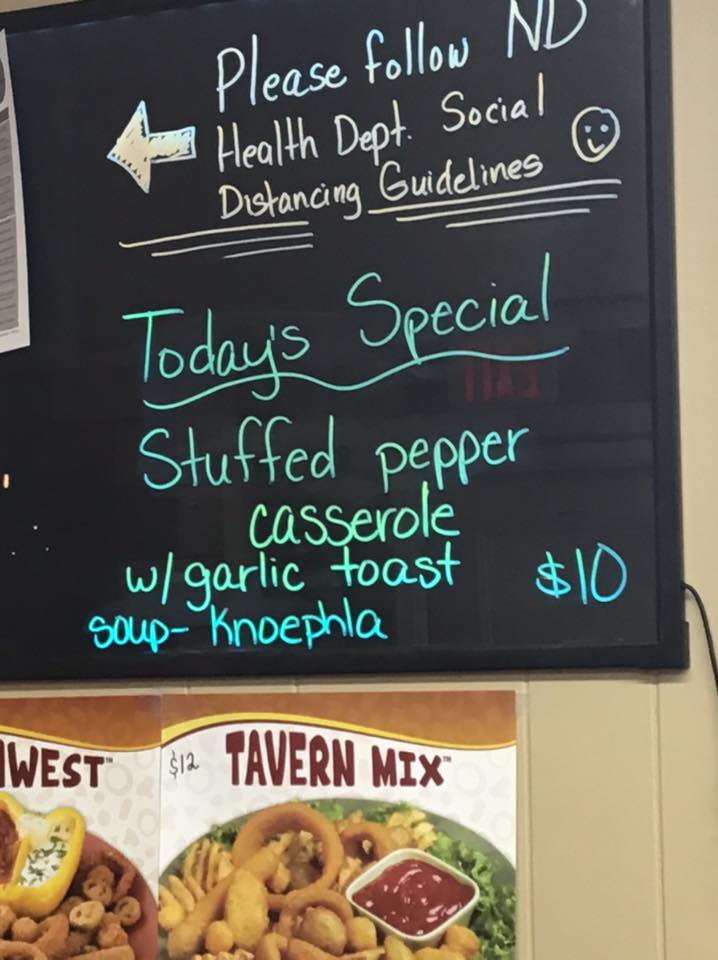 Please follow ND
Health Dept. Social
Distancing Guidelines
Today's Special
Stuffed pepper
casserole
w/garlic toast $10
soup- Knoephla
WEST™
$12 TAVERN MIX™